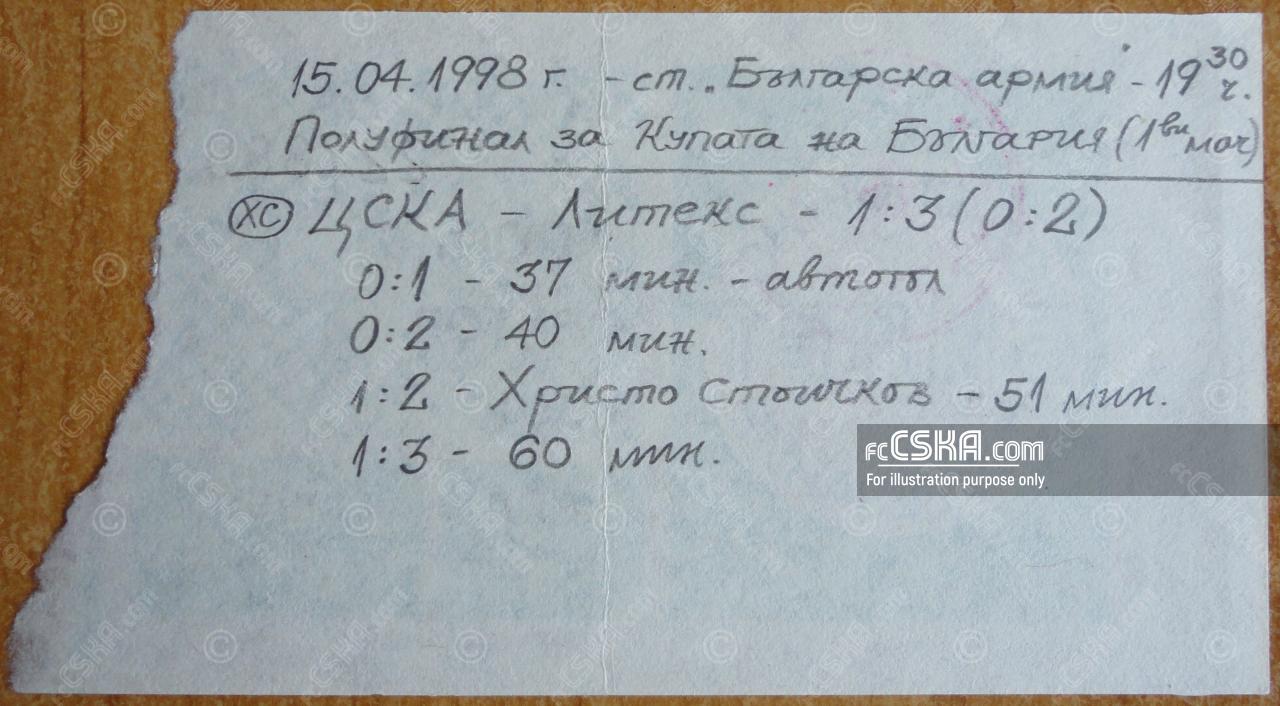 15.04.1998 г. - ст. „Българска армия“ - 19³⁰ ч.
Полуфинал за Купата на България (1ви мач)
ХС ЦСКА - Литекс - 1:3 (0:2)
0:1 - 37 мин. - автогол
0:2 - 40 мин.
1:2 - Христо Стоичков - 51 мин.
1:3 - 60 мин.
FCCSKA.COM
For illustration purpose only